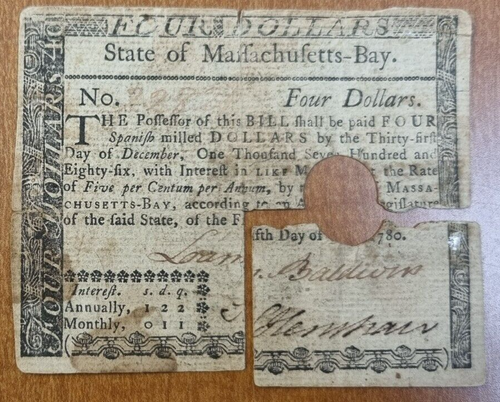 FOUR DOLLARS
State of Maſſachuſetts-Bay.
No. Four Dollars.
THE Poſſeſſor of this BILL ſhall be paid FOUR
Spaniſh milled DOLLARS by the Thirty-firſt
Day of December, One Thouſand Seven Hundred and
Eighty-ſix, with Intereſt in LIKE M the Rate
of Five per Centum per Annum, by MASSA-
CHUSETTS-BAY, according to an A egiſlature
of the ſaid State, of the F
ifth Day of 1780.
Baldwin
Intereſt. s. d. q.
Annually, 1 2 2
Monthly, 0 1 1
Henshaw
FOUR DOLLARS